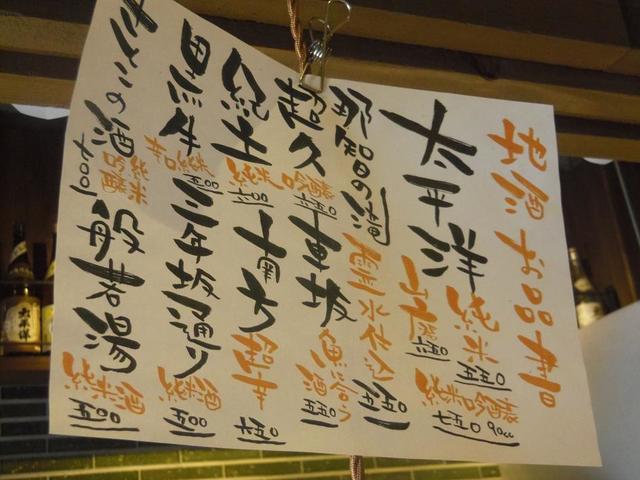 地酒お品書
太平洋
純米
五五〇
山廃
六五〇
純米吟醸
七五〇
90cc
那智の滝
霊水仕込
五五〇
超久
純米吟醸
車坂
魚に合う酒
五五〇
紀土
純米
南方
超辛
七五〇
黒牛
辛口純米
五〇〇
三年坂通り
純米酒
五〇〇
きのこの酒
純米吟醸
七〇〇
般若湯
純米酒
五〇〇
太平洋